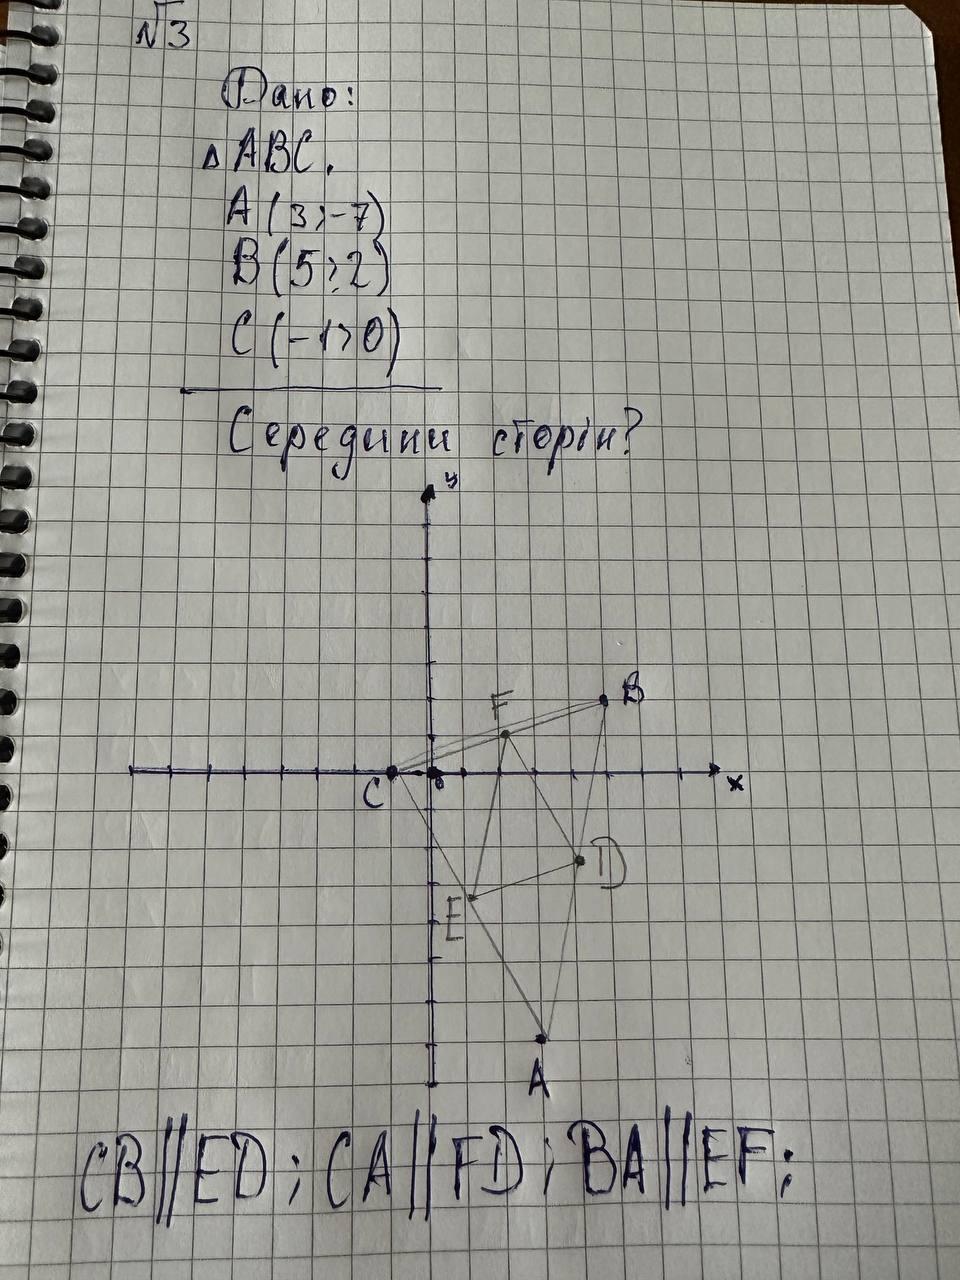 №3
Дано:
△ABC.
A(3;-7)
B(5;2)
C(-1;0)
Середини сторін?
y
F
B
C
0
x
D
E
A
CB||ED; CA||FD; BA||EF;